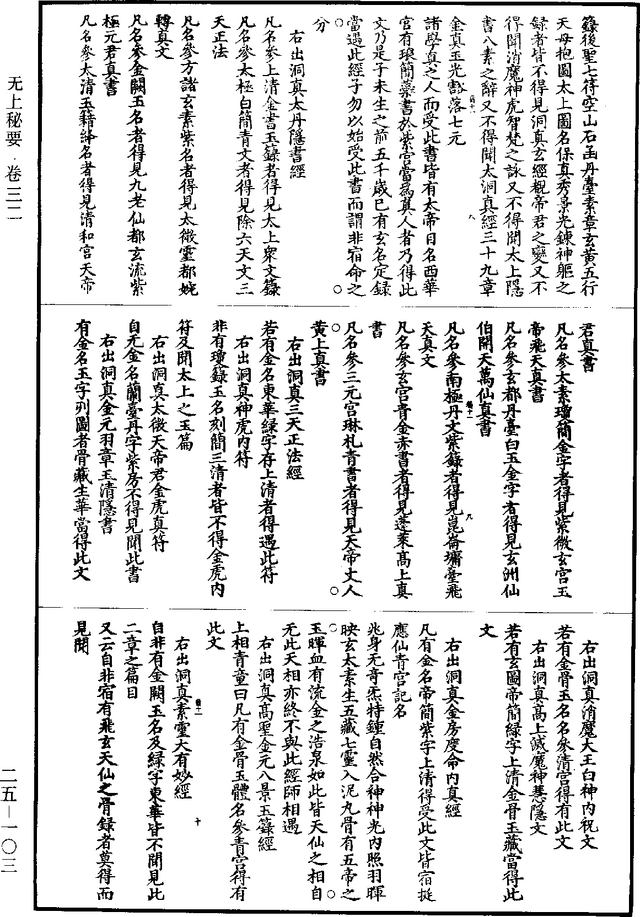 籙後聖七符空山石函丹臺素章玄黃五行
天母抱圖太上圖名保真秀景光鍊神軀之
録者皆不得見洞真玄經覩帝君之變又不
得聞消魔神虎智梵之詠又不得聞太上隱
書八素之辭又不得聞太洞真經三十九章
金真玉光豁落七元
諸學真之人而受此書皆有太帝目名西華
宮有琅簡蘂書於紫宮當為真人者乃得此
文乃是子未生之前五千歲已有玄名定録
當遇此經子勿以始受此書而謂非宿命之
分
右出洞真太丹隱書經
凡名參上清金書玉籙者得見太上衆文籙
凡名參太極白簡青文者得見除六天文三
天正法
凡名參方諸玄素紫名者得見太微靈都婉
轉真文
凡名參金闕玉名者得見九老仙都玄流紫
極元君真書
凡名參太清玉籍絳名者得見清和宮天帝
君真書
凡名參太素瓊簡金字者得見紫微玄宮玉
帝飛天真書
凡名參玄都丹臺白玉金字者得見玄洲仙
伯開天萬仙真書
凡名參南極丹文紫籙者得見崑崙墉臺飛
天真文
凡名參玄宮青金赤書者得見蓬萊高上真
書
凡名參三元宮琳札青書者得見天帝丈人
黃上真書
右出洞真三天正法經
若有金名東華緑字存上清者得遇此符
右出洞真神虎内符
非有瓊籙玉名刻簡三清者皆不得金虎内
符及聞太上之玉篇
右出洞真太微天帝君金虎真符
自无金名蘭臺丹字紫房不得見聞此書
右出洞真金元羽章玉清隱書
有金名玉字列圖者骨藏生華當得此文
右出洞真消魔大王白神内祝文
若有金骨玉名名參清宮得有此文
右出洞真高上滅魔神慧隱文
若有玄圖帝簡緑字上清金骨玉藏當得此
文
右出洞真金房度命内真經
凡有金名帝簡紫字上清得受此文皆宿挺
應仙青宮記名
兆身无奇炁特鍾自然合神神光内照羽暉
映玄太素生五藏七靈入泥九骨有五帝之
玉暉血有流金之浩泉如此皆天仙之相自
无此天相亦終不與此經師相遇
右出洞真高聖金元八景玉籙經
上相青童曰凡有金骨玉體名參青宮得有
此文
右出洞真素靈大有妙經
自非有金闕玉名及緑字東華皆不聞見此
二章之篇目
又云自非宿有飛玄天仙之骨録者莫得而
見聞
无上秘要·卷三二
二五—一〇三